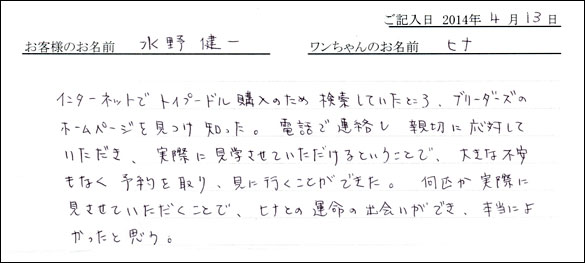 ご記入日 2014年 4 月 13 日
お客様のお名前 水野 健一 ワンちゃんのお名前 ヒナ
インターネットで トイプードル 購入のため 検索していたところ、ブリーダーズの
ホームページを見つけ 知った。 電話で連絡し 親切に応対して
いただき、 実際に見学させていただけるということで、 大きな不安
もなく 予約を取り、見に行くことができた。 何匹か実際に
見させていただくことで、ヒナとの運命の出会いができ、本当によ
かったと思う。